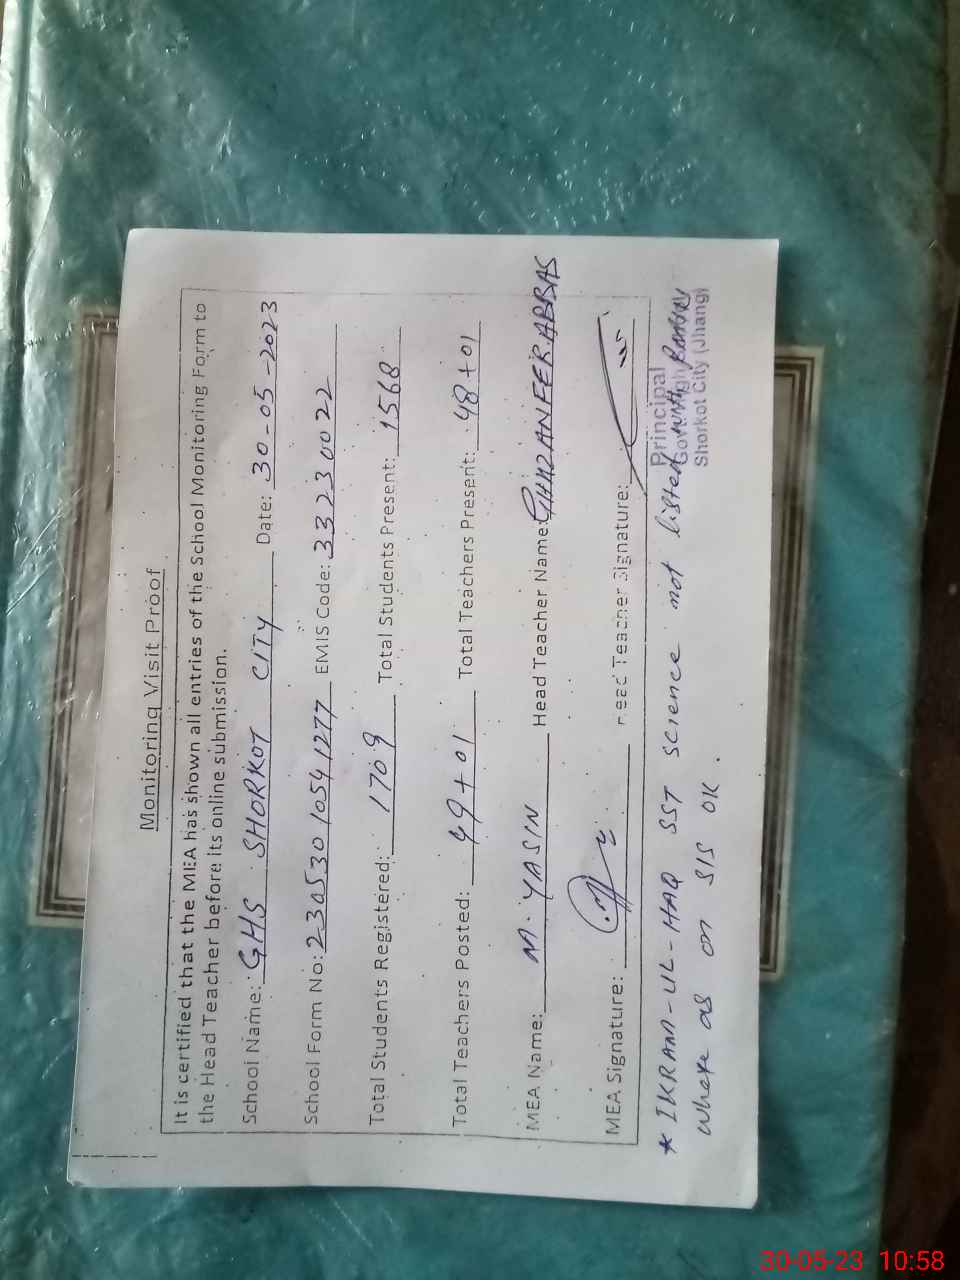 Monitoring Visit Proof
It is certified that the MEA has shown all entries of the School Monitoring Form to
the Head Teacher before its online submission.
School Name: GHS SHORKOT CITY Date: 30-05-2023
School Form No: 23053010541277 EMIS Code: 33230022
Total Students Registered: 1709 Total Students Present: 1568
Total Teachers Posted: 49+01 Total Teachers Present: 48+01
MEA Name: M. YASIN Head Teacher Name: ABBAS
MEA Signature: Head Teacher Signature:
Principal
Shorkot City (Jhang)
* IKRAM-UL-HAQ SST Science not listed
where as on SIS OK.
30-05-23 10:58